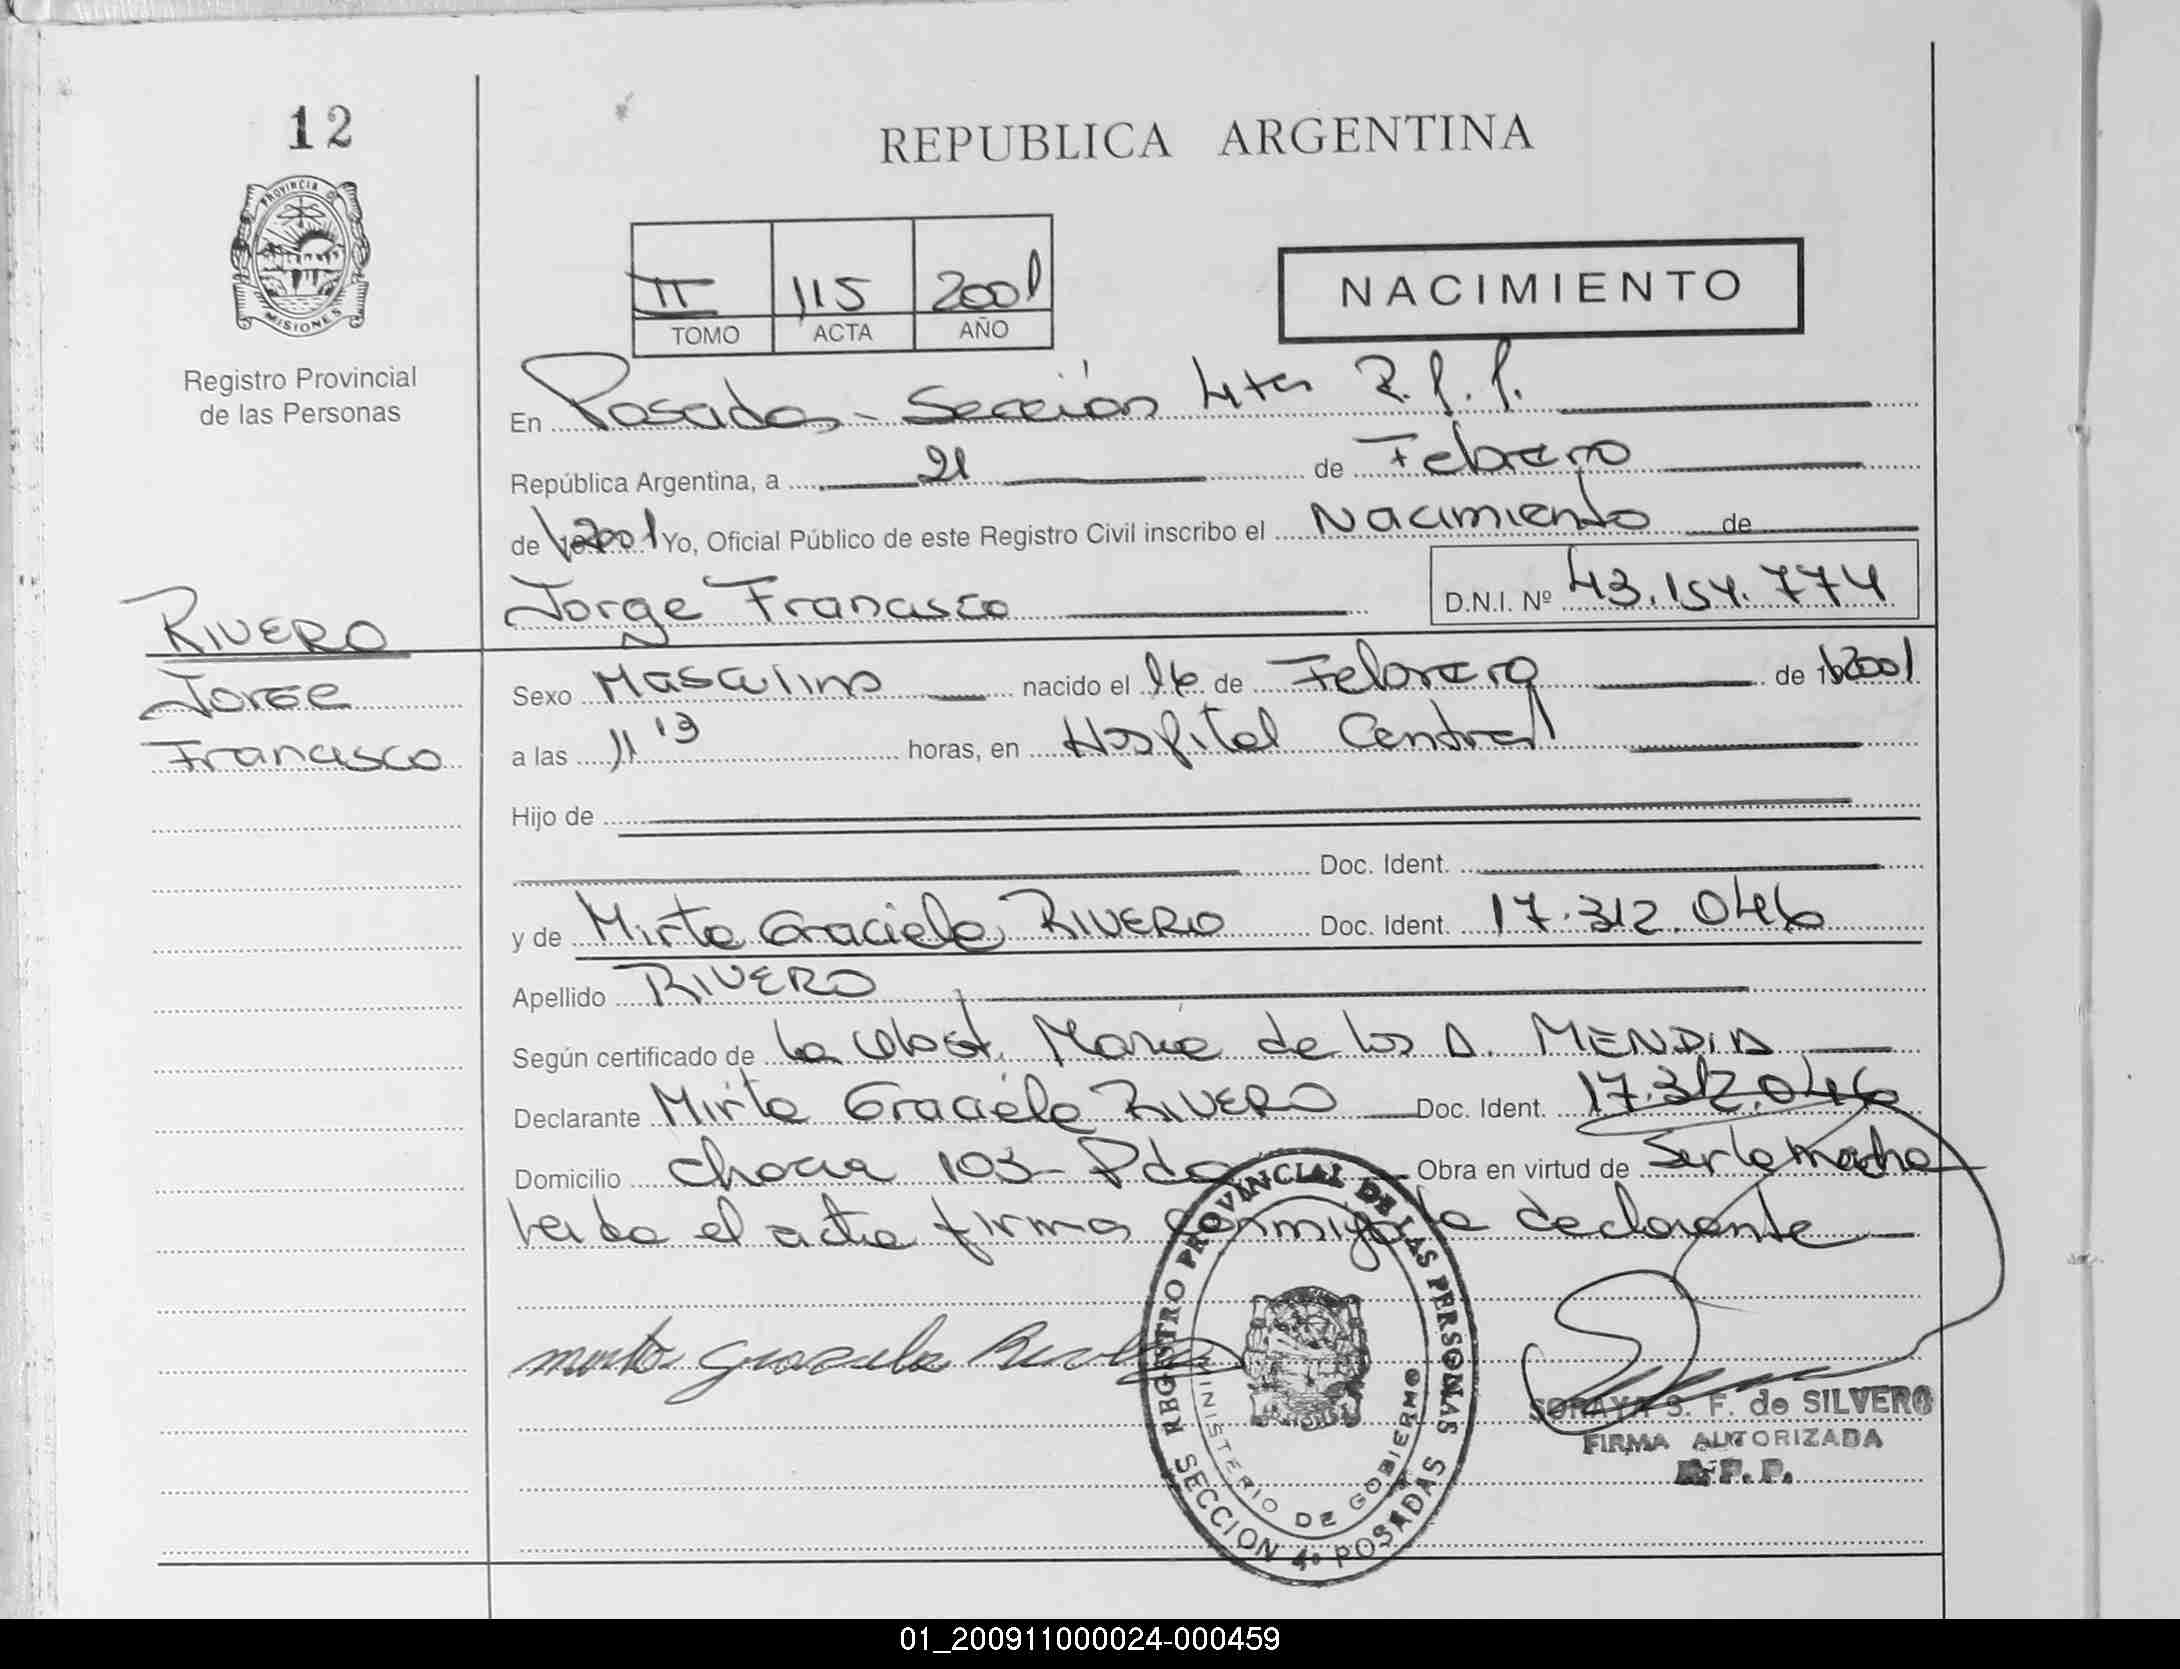 12
PROVINCIA DE
MISIONES
Registro Provincial
de las Personas
REPUBLICA ARGENTINA
II 115 2001
TOMO ACTA AÑO
NACIMIENTO
En Posadas - Sección 4ta R.P.P.
República Argentina, a 21 de Febrero
de 2001 Yo, Oficial Público de este Registro Civil inscribo el Nacimiento de
Jorge Francisco D.N.I. Nº 43.154.774
RIVERO
Jorge
Francisco
Sexo Masculino nacido el 16 de Febrero de 2001
a las 11 13 horas, en Hospital Central
Hijo de
Doc. Ident.
y de Mirta Graciela RIVERO Doc. Ident. 17.312.046
Apellido RIVERO
Según certificado de La Obst. María de los A. MENDIA
Declarante Mirta Graciela RIVERO Doc. Ident. 17.312.046
Domicilio 103 - Pdas Obra en virtud de Ser la madre
Leída el acta firma conmigo la declarante
mirta graciela Rivero
REGISTRO PROVINCIAL DE LAS PERSONAS
MINISTERIO DE GOBIERNO
SECCION 4ª POSADAS
SORAYA S. F. de SILVERO
FIRMA AUTORIZADA
R.P.P.
01_200911000024-000459